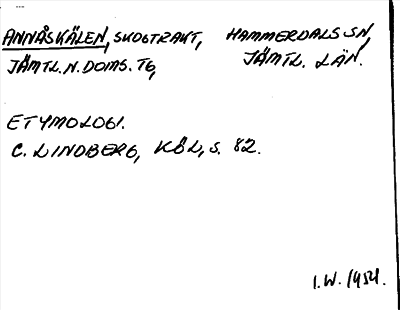 ANNÅSKÄLEN, SKOGTRAKT, HAMMERDALS SN,
JÄMTL. N. DOMS. TG, JÄMTL. LÄN.
ETYMOLOGI.
C. LINDBERG, KÖL, S. 82.
I.W. 1954.